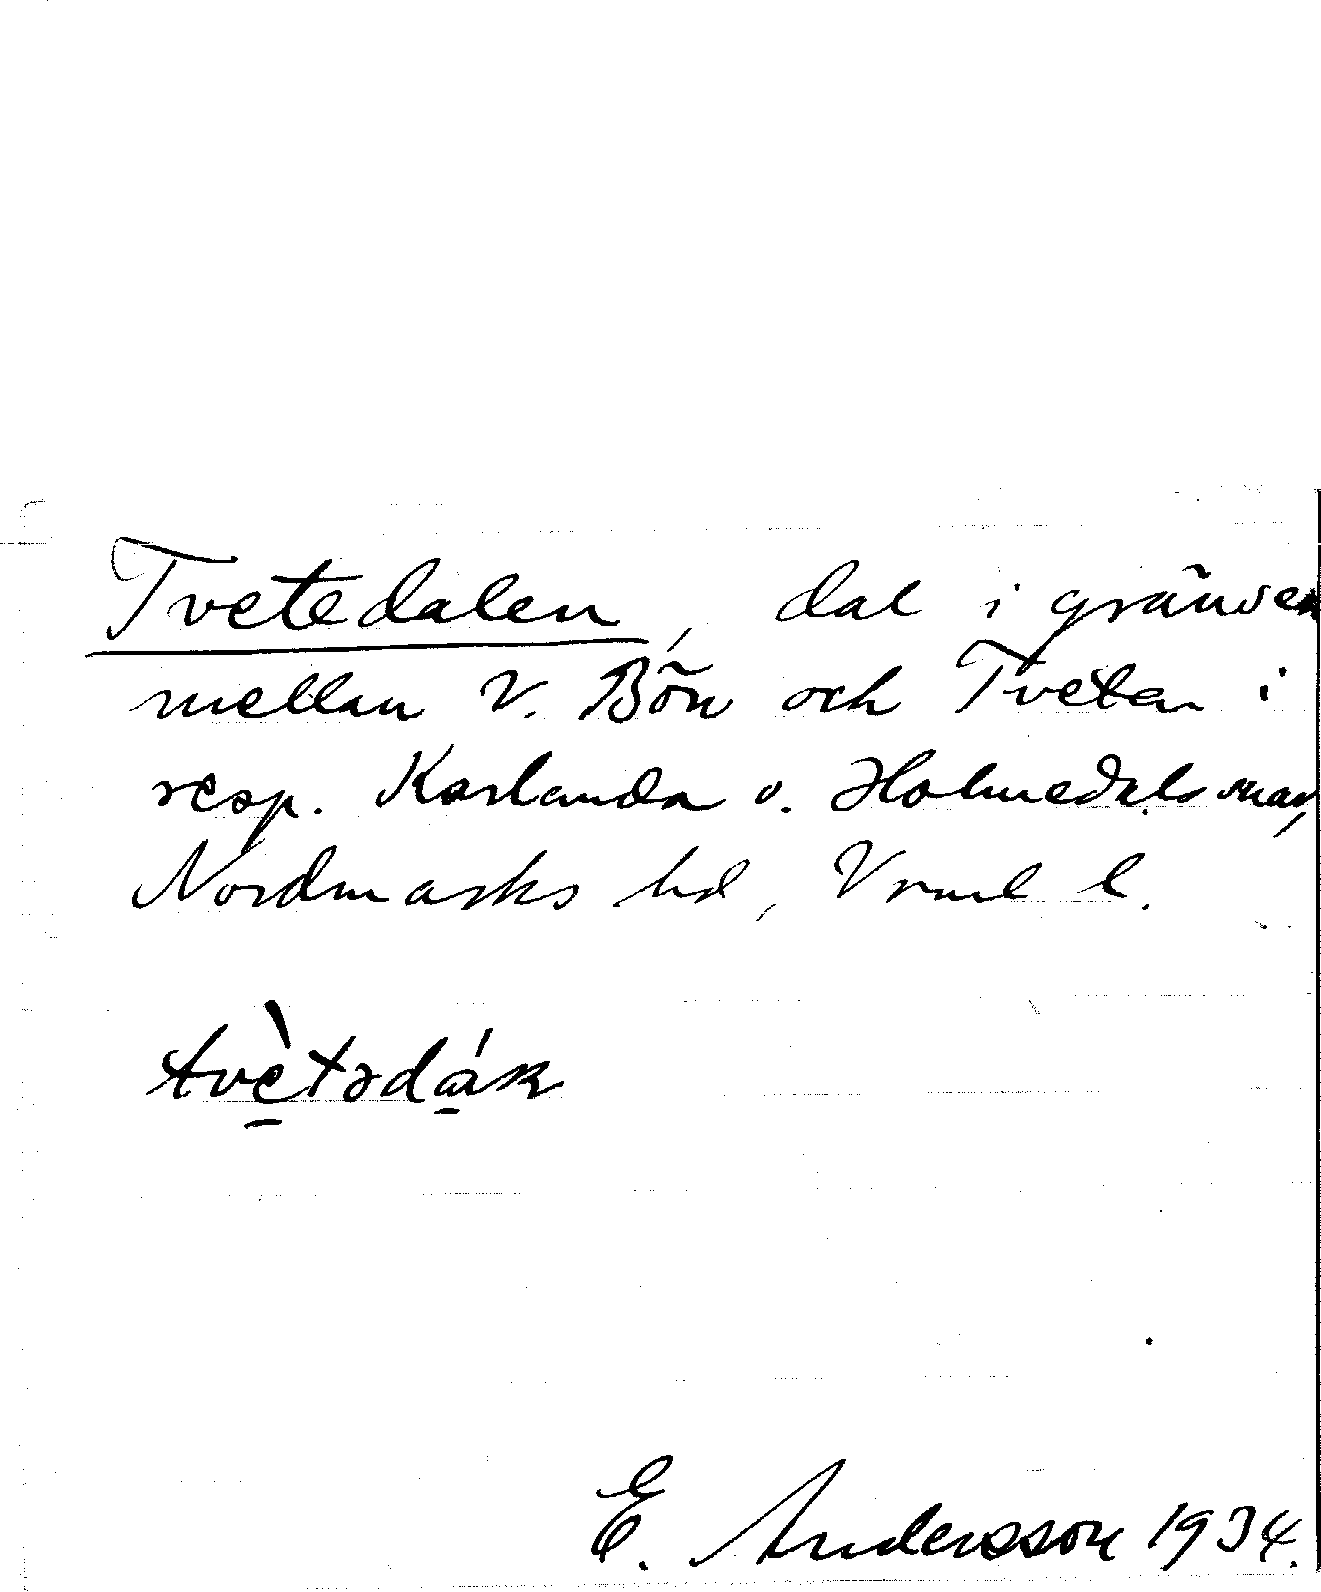 Tvetedalen, dal i gränsen
mellan V. Bön och Tveten i
resp. Karlanda o. Holmedals snar,
Nordmarks hd, Vrml l.
tvètədáɴ
E. Andersson 1934.